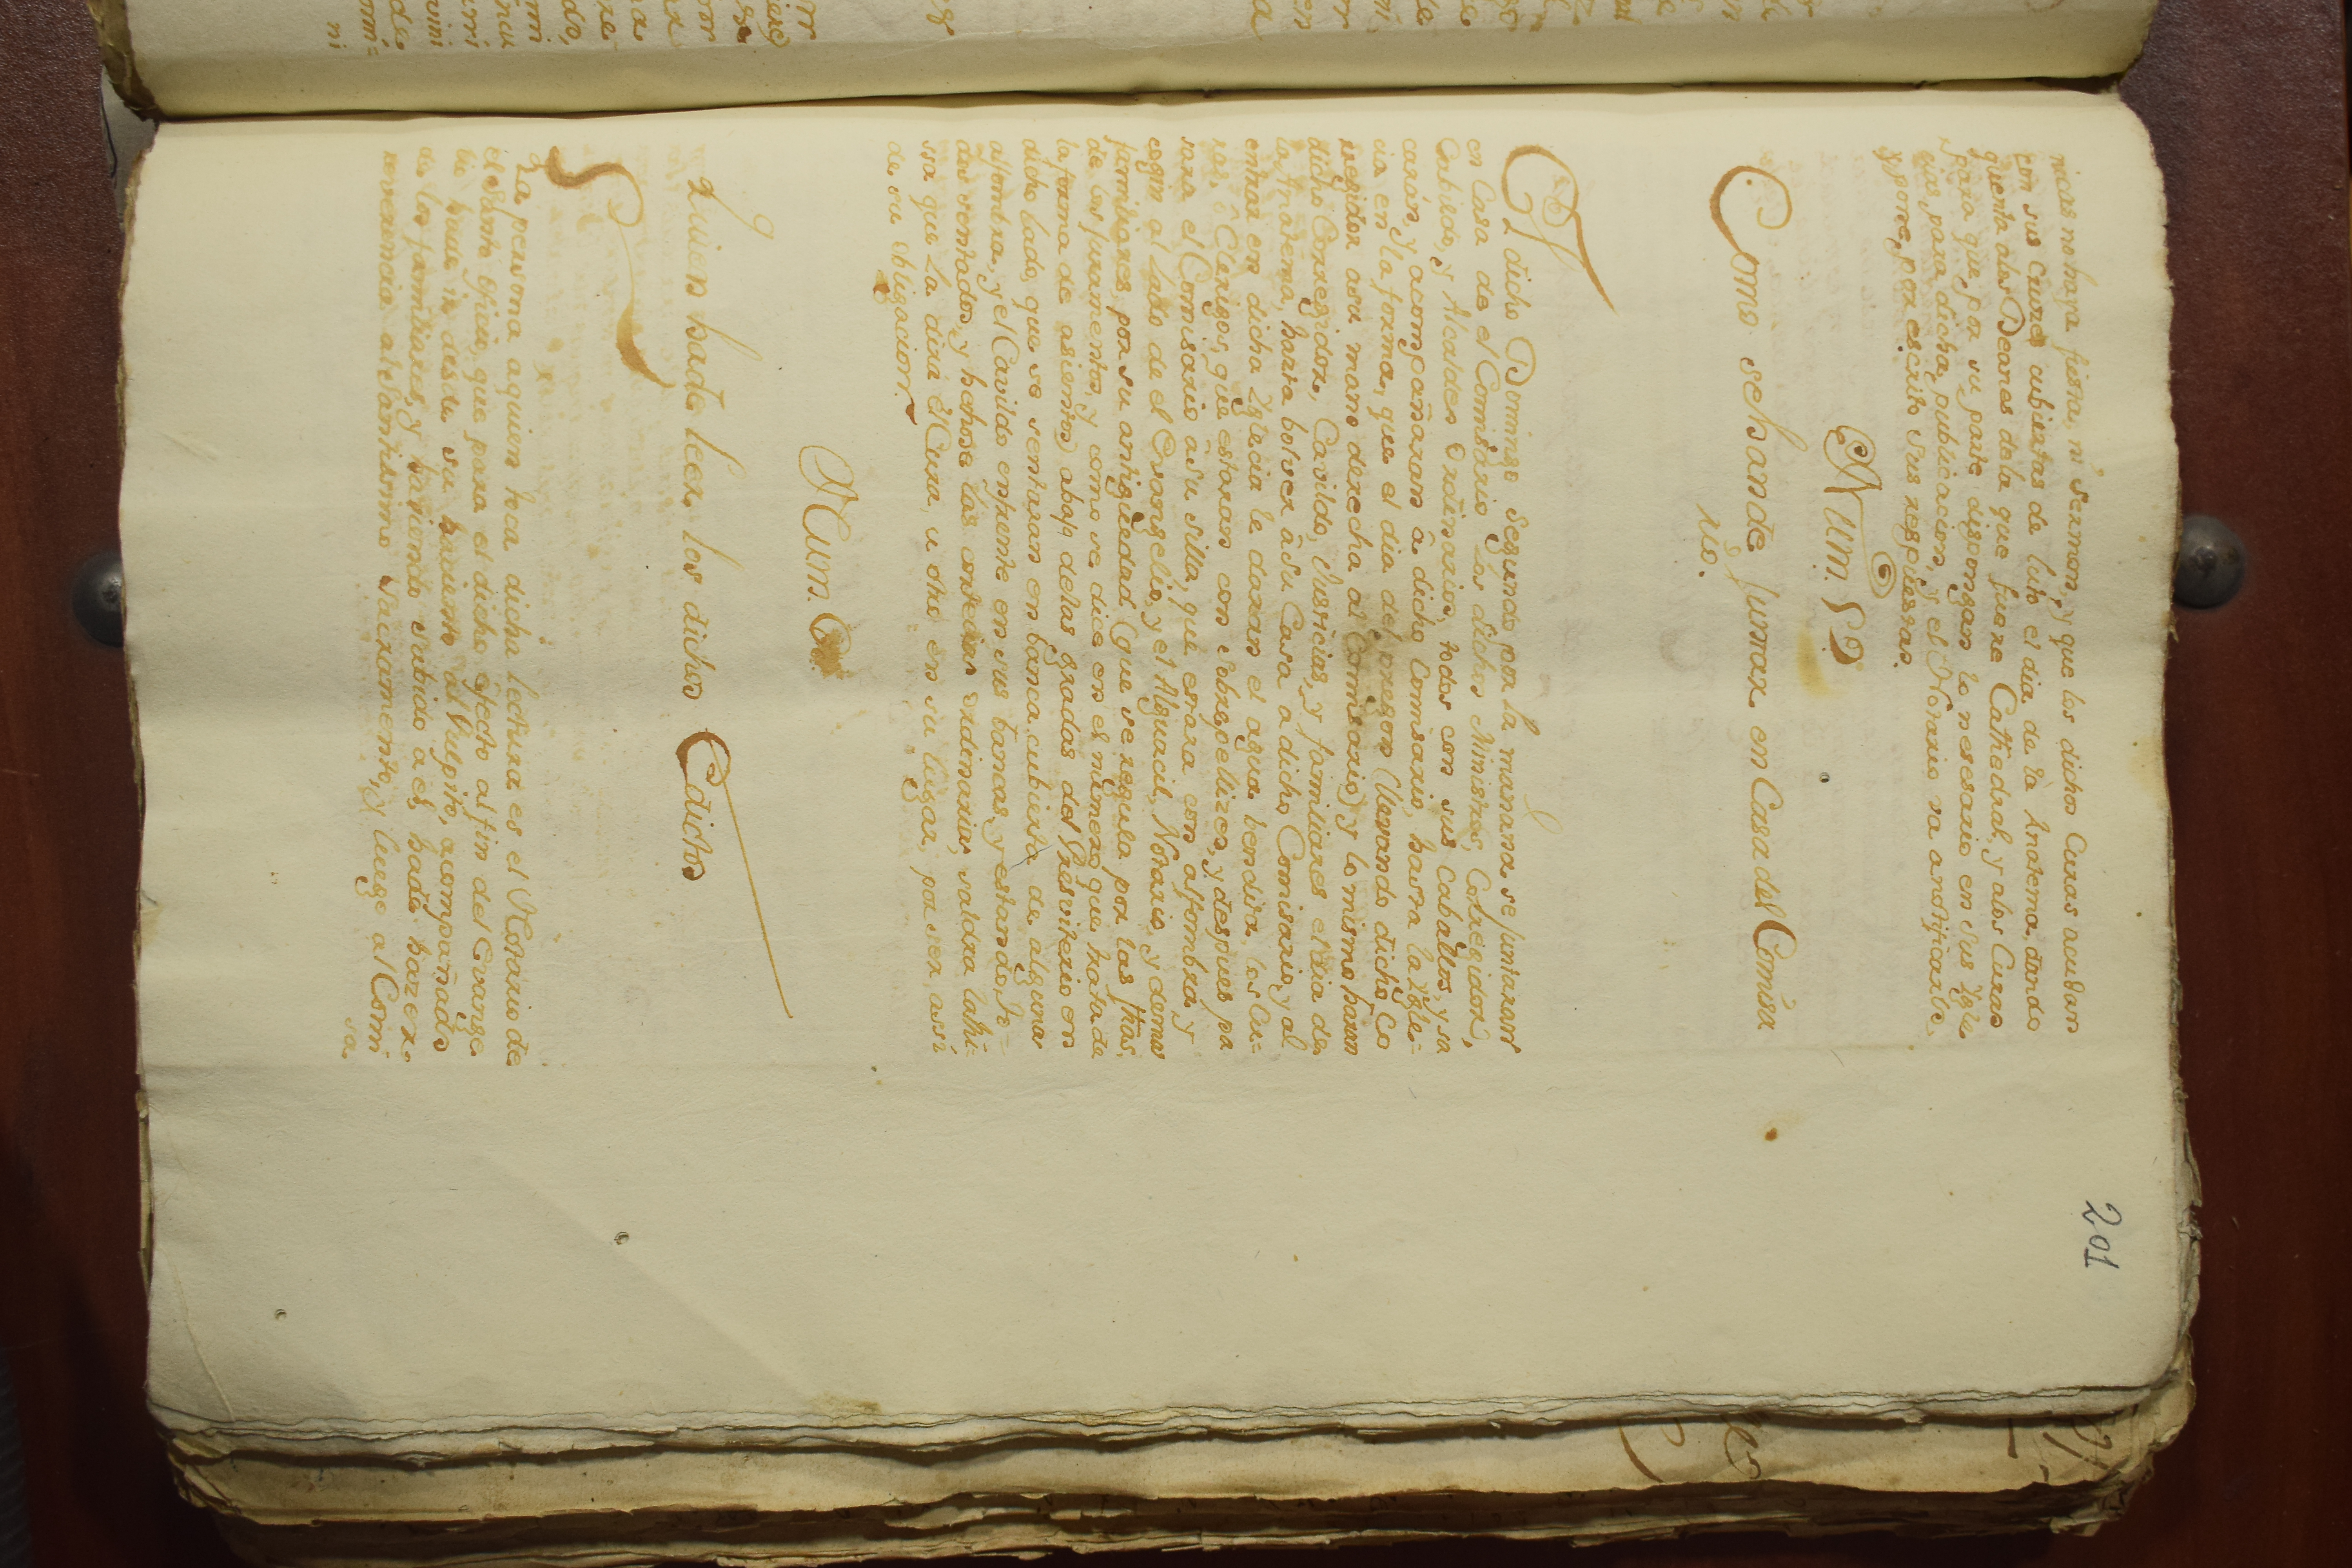 201
nicas no haya fiesta, ni sermon, y que los dichos Curas acudan
con sus Cruces cubiertas de luto el dia de la Anatema, dando
quenta a los Deanes de la que fuere Cathedral, y a los Curas
para que por su parte dispongan lo nesesario en sus Ygle
cias para dicha publicacion, y el Notario va a notificarlo
y pone, por escrito sus respuestas.
Num. 5º
Como se han de Juntar en Casa del Comisa
rio.
El dicho Domingo segundo por la mañana se juntaran
en Casa de el Comisario los dichos Ministros, Corregidor,
Cabildo, y Alcaldes Ordinarios, todos con sus Caballos, y sa
caran, y acompañaran â dicho Comisario, hasta la Ygle=
cia en la forma, que el dia del pregon (llevando dicho Co
rregidor a su mano derecha al Comisario) y lo mismo haran
dicho Corregidor, Cavildo, Justicias, y familiares el dia de
la Anatema, hasta bolver â su Casa a dicho Comisario, y al
entrar en dicha Yglecia le daran el agua bendita, los Cu=
ras, ô Clerigos, que estaran con sobrepellizes, y despues pa
sara el Comisario â su silla, que estara con alfombra, y
cogin al lado de el Evangelio, y el Alguacil, Notario, y demas
familiares, por su antiguedad (que se regula por las fhas.
de los juramentos, y como se dice en el numero que trata de
la forma de asientos) abajo de las gradas del Presviterio en
dicho lado, que se sentaran en banca cubierta de alguna
alfombra, y el Cavildo enfrente en sus bancas, y estando, to=
dos sentados, y hechose las cortecias ordinarias, saldra la Mi=
ssa que la dira el Cura, u otro en su lugar, por ser, assi
de su obligacion.
Num. 6
Quien ha de leer los dichos Edictos
La persona a quien toca dicha lectura es el Notario de
el Santo Oficio, que para el dicho efecto al fin del Evange
lio hade ir desde su haciento al Pulpito, acompañado
de los familiares, y haviendo subido a el, hade hazer
reverencia al Santisimo Sacramento, y luego al Comi
sa